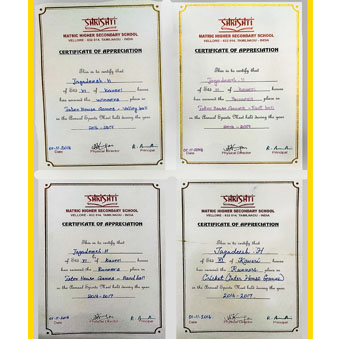 SHRISHTI
MATRIC HIGHER SECONDARY SCHOOL
VELLORE - 632 014, TAMILNADU - INDIA
CERTIFICATE OF APPRECIATION
This is to certify that
Jagadeesh H
of Std XI of Kaveri House
has secured the winners place in
Inter House Games - Volley ball
in the Annual Sports Meet held during the year
2016-2017
01-11-2016
Date
Physical Director
Principal
SHRISHTI
MATRIC HIGHER SECONDARY SCHOOL
VELLORE - 632 014, TAMILNADU - INDIA
CERTIFICATE OF APPRECIATION
This is to certify that
Jagadeesh H
of Std XI of Kaveri House
has secured the place in
Inter House Games
in the Annual Sports Meet held during the year
2016-2017
Date
Physical Director
Principal
SHRISHTI
MATRIC HIGHER SECONDARY SCHOOL
VELLORE - 632 014, TAMILNADU - INDIA
CERTIFICATE OF APPRECIATION
This is to certify that
Jagadeesh H
of Std XI of Kaveri House
has secured the Runners place in
Inter House Games - Hand ball
in the Annual Sports Meet held during the year
2016-2017
Date
Physical Director
Principal
SHRISHTI
MATRIC HIGHER SECONDARY SCHOOL
VELLORE - 632 014, TAMILNADU - INDIA
CERTIFICATE OF APPRECIATION
This is to certify that
Jagadeesh .H
of Std XI of Kaveri House
has secured the Runners place in
Cricket (Inter House Games)
in the Annual Sports Meet held during the year
2016-2017
Date
Physical Director
Principal